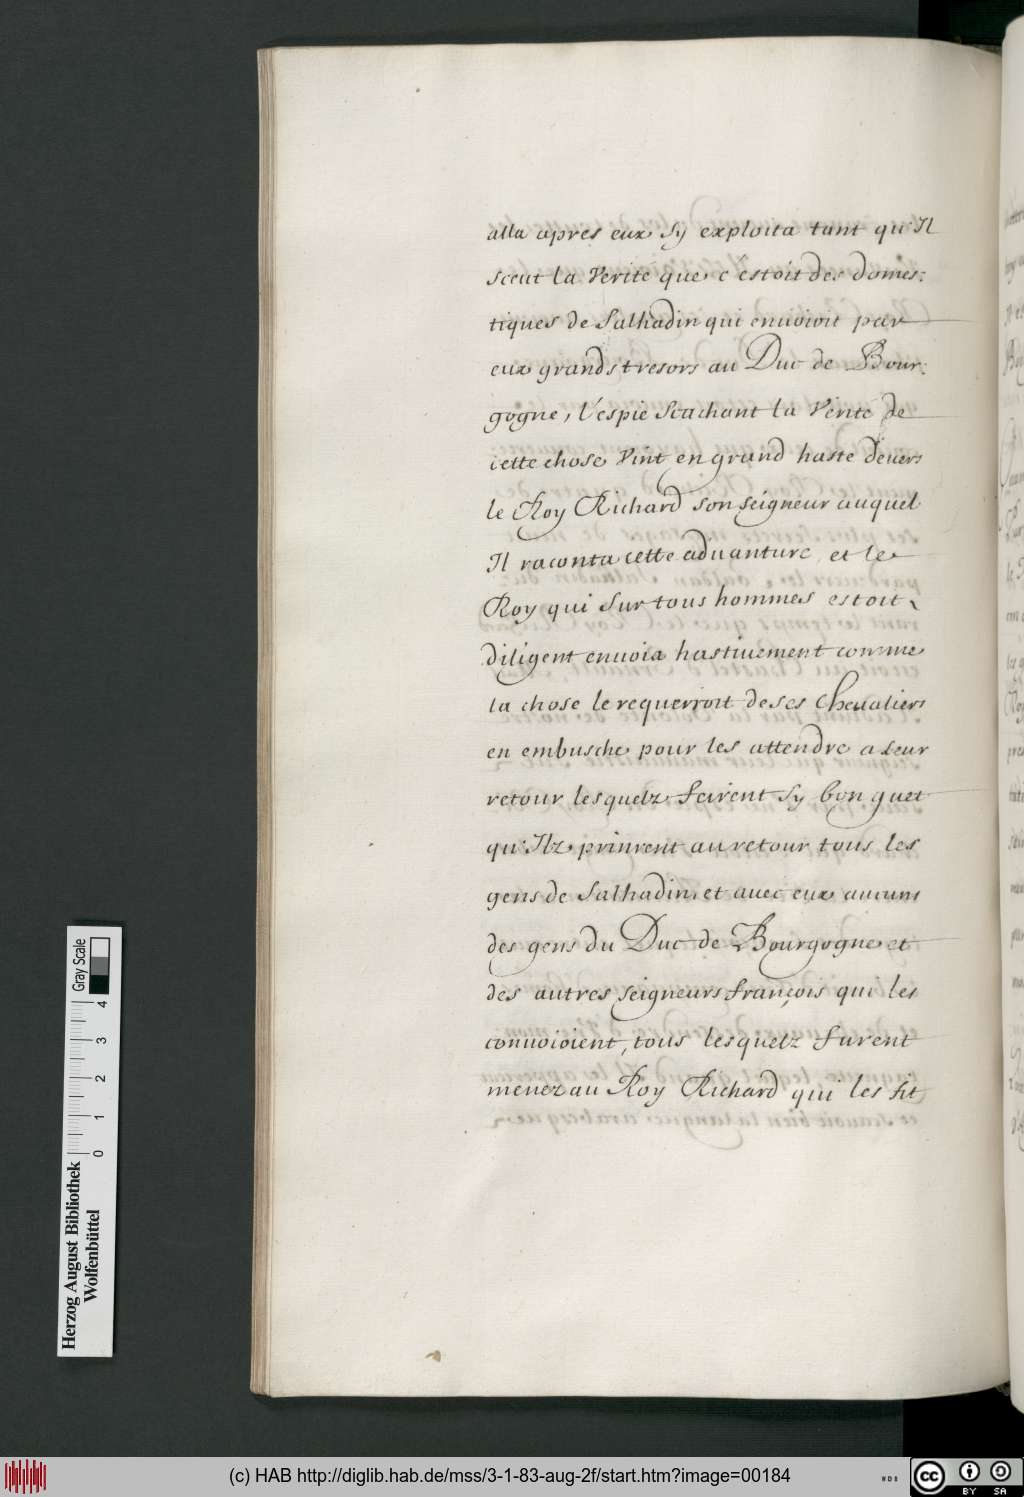 alla apres eux sy exploita tant qu'Il
sceut la Verite que c'estoit des domes:
tiques de Salhadin qui envoioit par
eux grands tresors au Duc de Bour:
gogne, l'espie scachant la Verite de
cette chose Vint en grand haste devers
le Roy Richard son seigneur auquel
Il raconta cette aduanture et le
Roy qui sur tous hommes estoit
diligent envoia hastiuement comme
la chose le requerroit de ses Cheualiers
en embusche pour les attendre a leur
retour lesquelz feirent sy bon guet
qu'Ilz prinrent au retour tous les
gens de Salhadin et avec eux aucuns
des gens du Duc de Bourgogne et
des autres seigneurs françois qui les
convoioient, tous lesquelz furent
menez au Roy Richard qui les fit
Herzog August Bibliothek
Wolfenbüttel
0 1 2 3 4
Gray Scale
(c) HAB http://diglib.hab.de/mss/3-1-83-aug-2f/start.htm?image=00184
WDB
cc BY SA